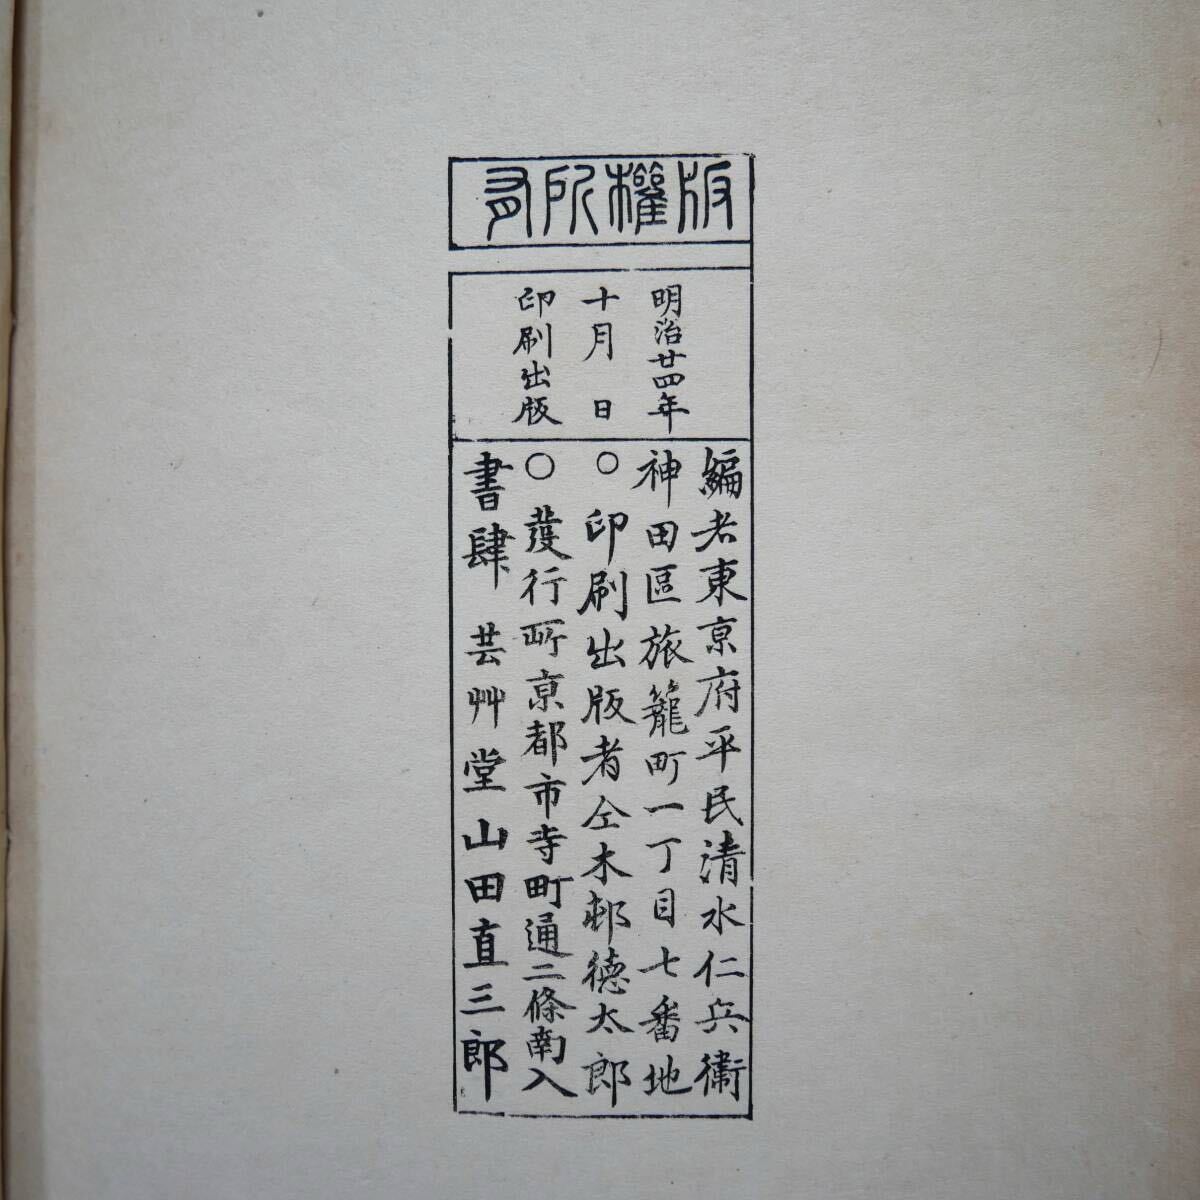 版權所有
明治廿四年
十月　日
印刷出版
編者東京府平民清水仁兵衛
神田區旅籠町一丁目七番地
○印刷出版者仝木邨徳太郎
○發行所京都市寺町通二條南入
書肆　芸艸堂山田直三郎